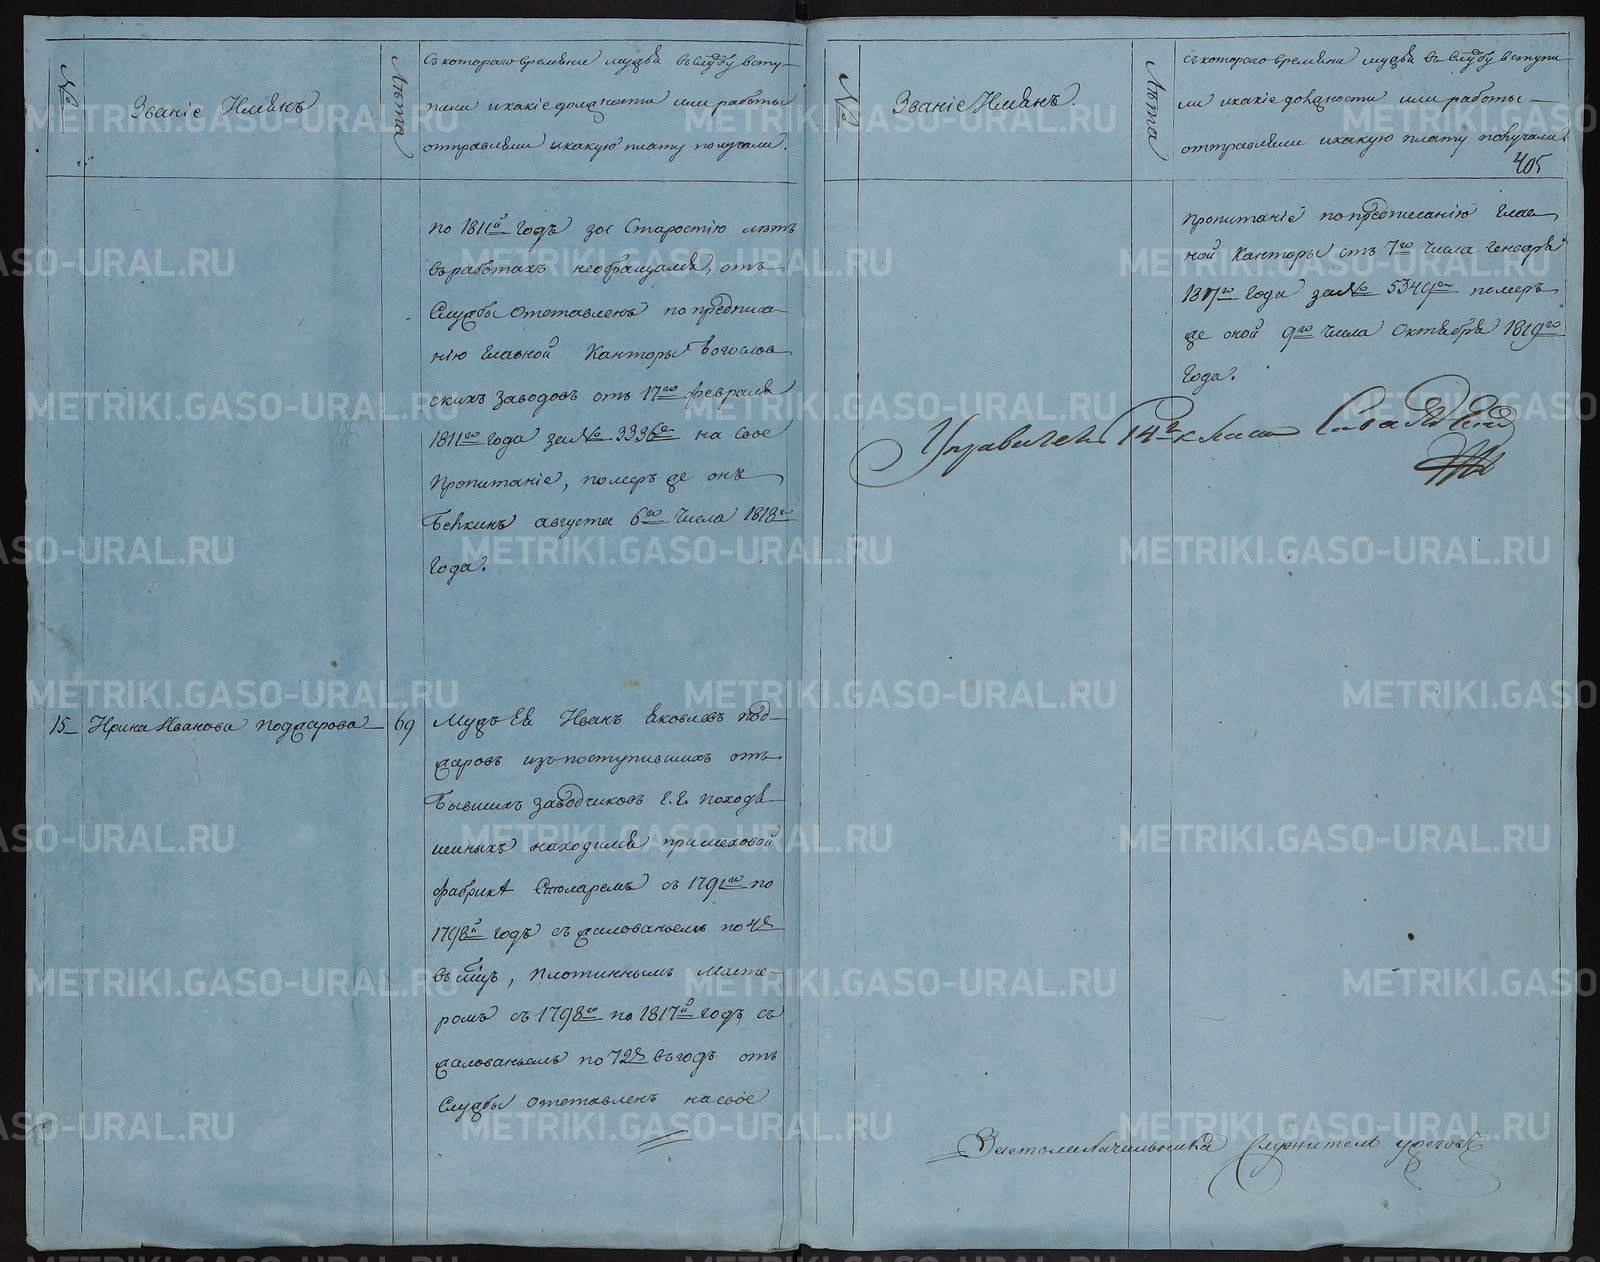 №
Званіе Имянъ
Лѣта
съ котораго времяни мужья въ службу всту-
пили и какіе должности или работы
отправляли и какую плату получали.
по 1811й годъ за Старостію лѣтъ
въ работахъ необращался, отъ
Службы отставленъ по предписа-
нію Главной Канторы Богослов-
скихъ заводовъ отъ 17го февраля
1811го года за № 3336м на свое
Пропитаніе, померъ же онъ
августа 6го числа 1818го
Года.
15 Ирина Иванова Поджарова 69
Мужъ Ея Иванъ Яковлевъ под-
жаровъ изъ поступившихъ отъ
бывшихъ заводчиковъ Г.Г. Походя-
шиныхъ находился при меховой
фабрикѣ Столяремъ съ 1791го по
1798й годъ съ жалованьемъ по 4 р
въ мцъ, плотиннымъ масте-
ромъ съ 1798го по 1817й годъ съ
жалованьемъ по 72 р въ годъ отъ
Службы отставленъ на свое
№
Званіе Имянъ.
Лѣта
съ котораго времяни мужья въ службу вступи-
ли и какіе должности или работы
отправляли и какую плату получали.
405
пропитаніе по предписанію Глав-
ной Канторы отъ 7го числа Генваря
1817го Года за № 5349м померъ
же оной 9го числа Октября 1819го
Года.
Управитель 14го класса
За столоначальника Служитель
METRIKI.GASO-URAL.RU